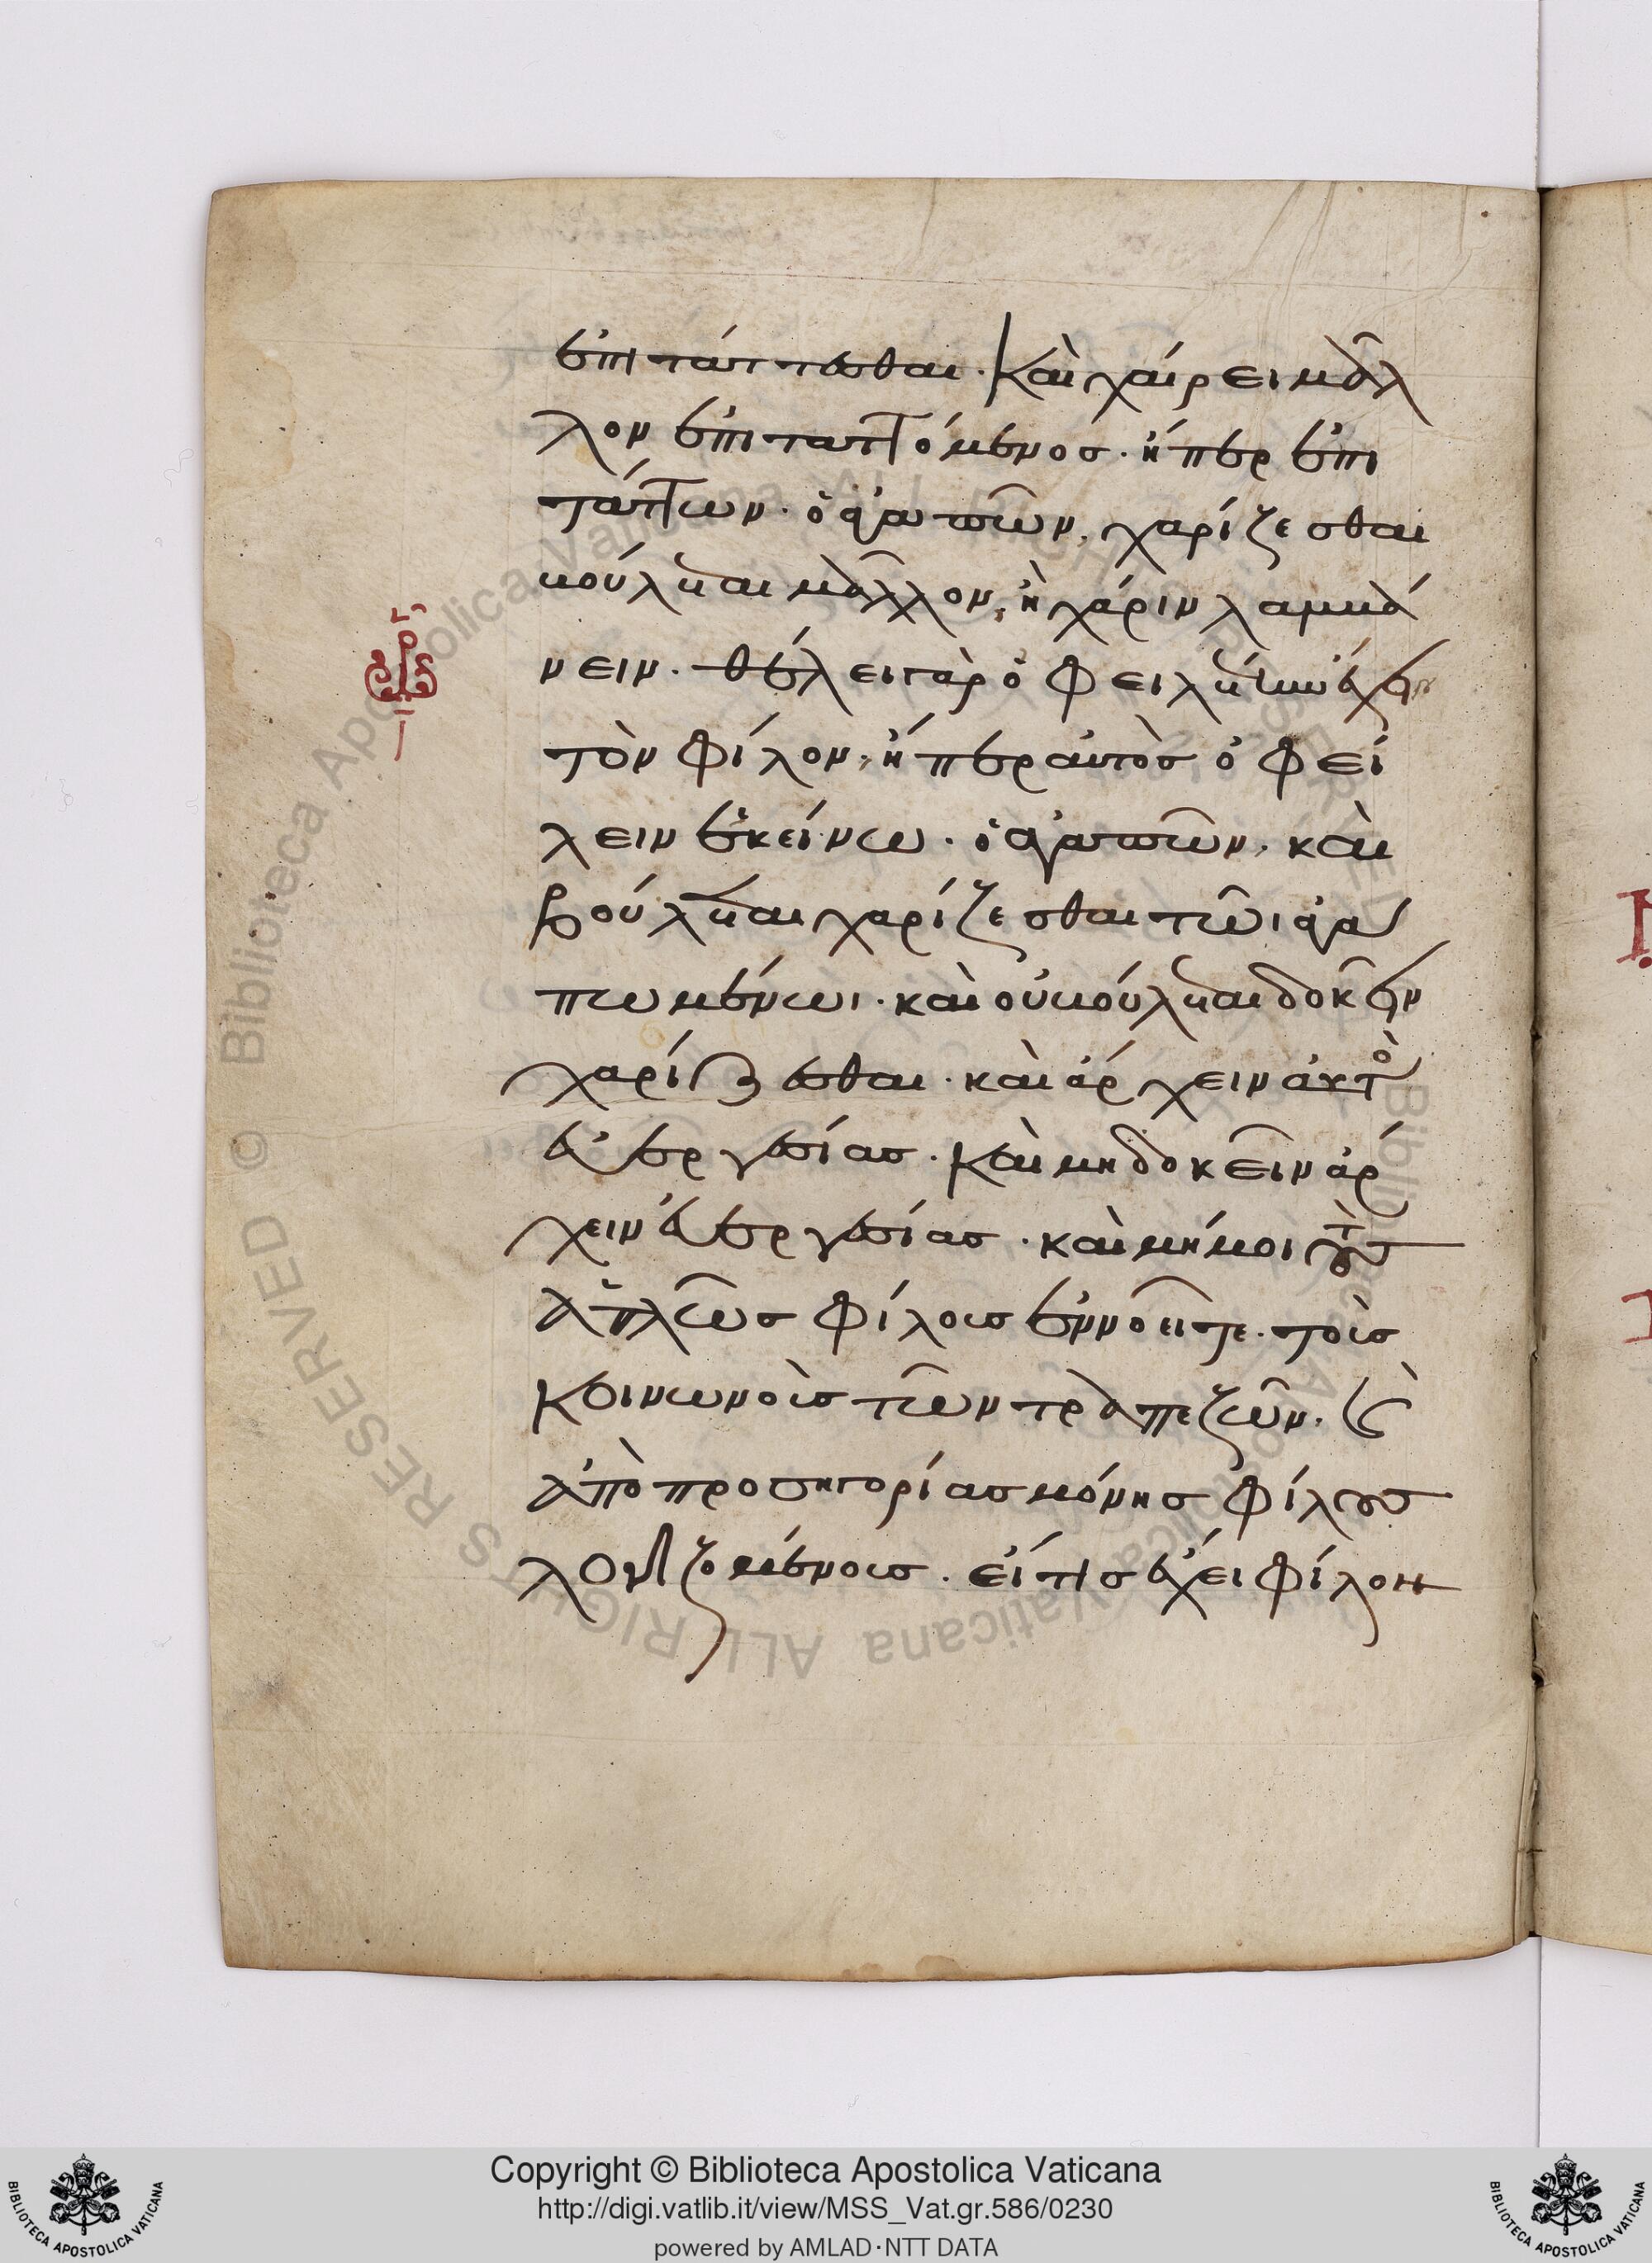 ἐπιτάττεσθαι· καὶ χαίρει μᾶλ
λον ἐπιταττόμενος· ἤπερ ἐπι
τάττων· ὁ ἀγαπῶν, χαρίζεσθαι
βούλεται μᾶλλον, ἢ χάριν λαμβά
νειν· θέλει γὰρ ὀφειλέτην ἔχειν
τὸν φίλον, ἤπερ αὐτὸς ὀφεί
λειν ἐκείνω· ὁ ἀγαπῶν, καὶ
βούλεται χαρίζεσθαι τῶι ἀγα
πωμένωι· καὶ οὐ βούλεται δοκεῖν
χαρίζεσθαι· καὶ ἄρχειν αὐτὸ
εὐεργεσίας· καὶ μὴ δοκεῖν ἄρ
χειν εὐεργεσίας· καὶ μή μοι τοὺς
ἁπλῶς φίλους ἐννοεῖτε· τοὺς
κοινωνοὺς τῶν τραπεζῶν· καὶ
ἀπὸ προσηγορίας μόνης φίλους
λογιζομένους· εἴ τις ἔχει φίλον
Copyright © Biblioteca Apostolica Vaticana
http://digi.vatlib.it/view/MSS_Vat.gr.586/0230
powered by AMLAD·NTT DATA
BIBLIOTECA APOSTOLICA VATICANA
BIBLIOTECA APOSTOLICA VATICANA